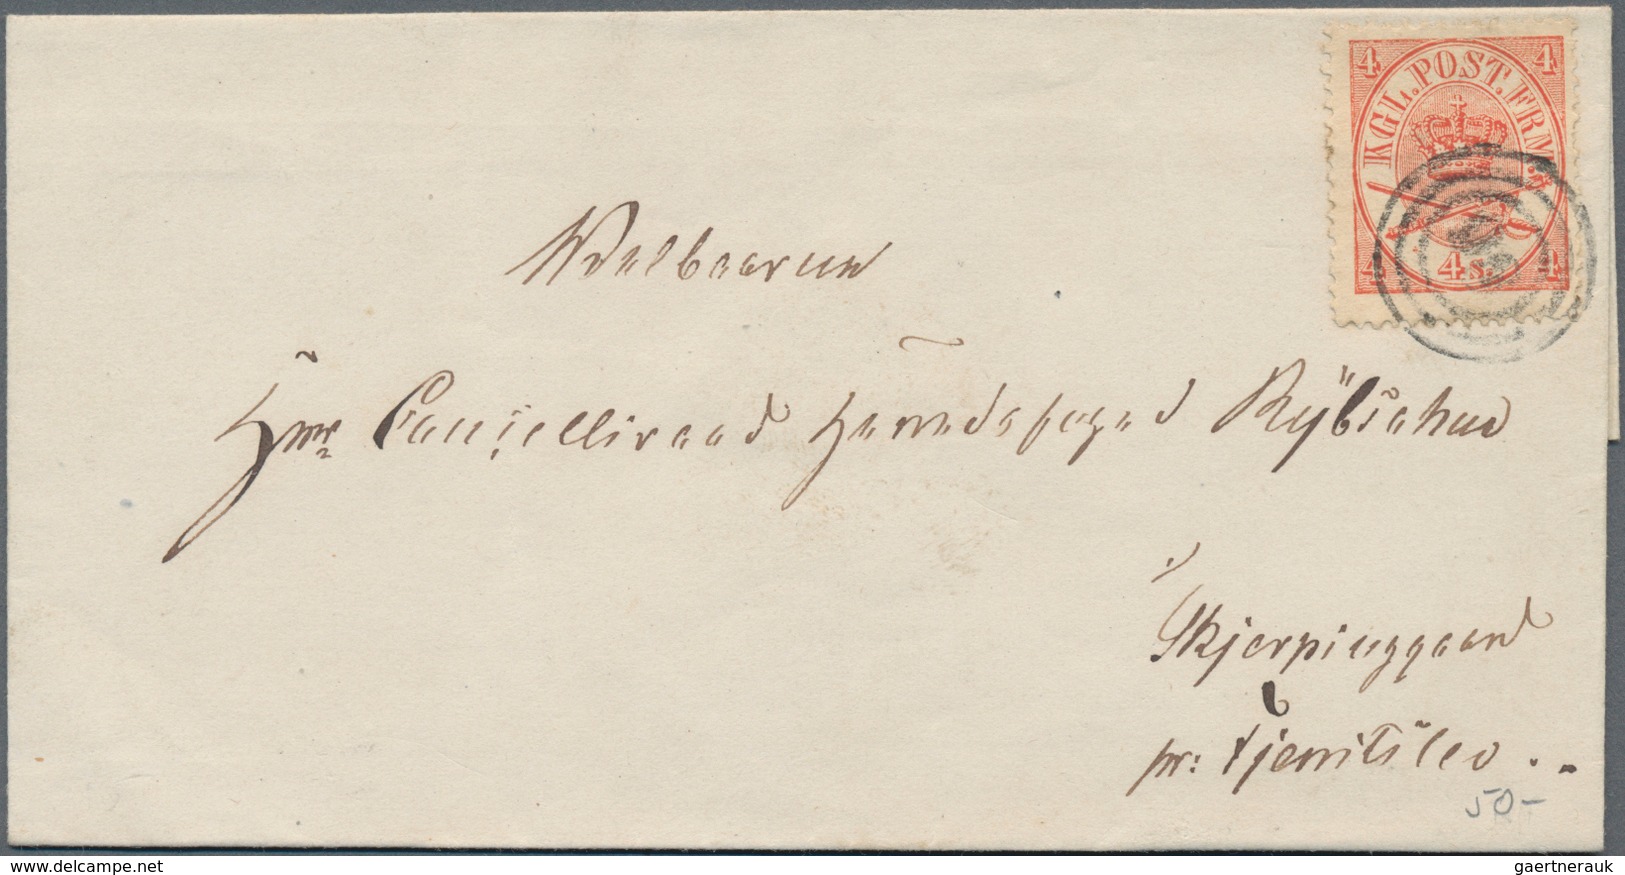 4 KGL. POST. FRM. 4
4 4 S. 4
Velbaarne
Herr Cancelliraad Herredsfoged
i
Skjerpinggaard
pr:
50-
www.delcampe.net
gaertnerauk